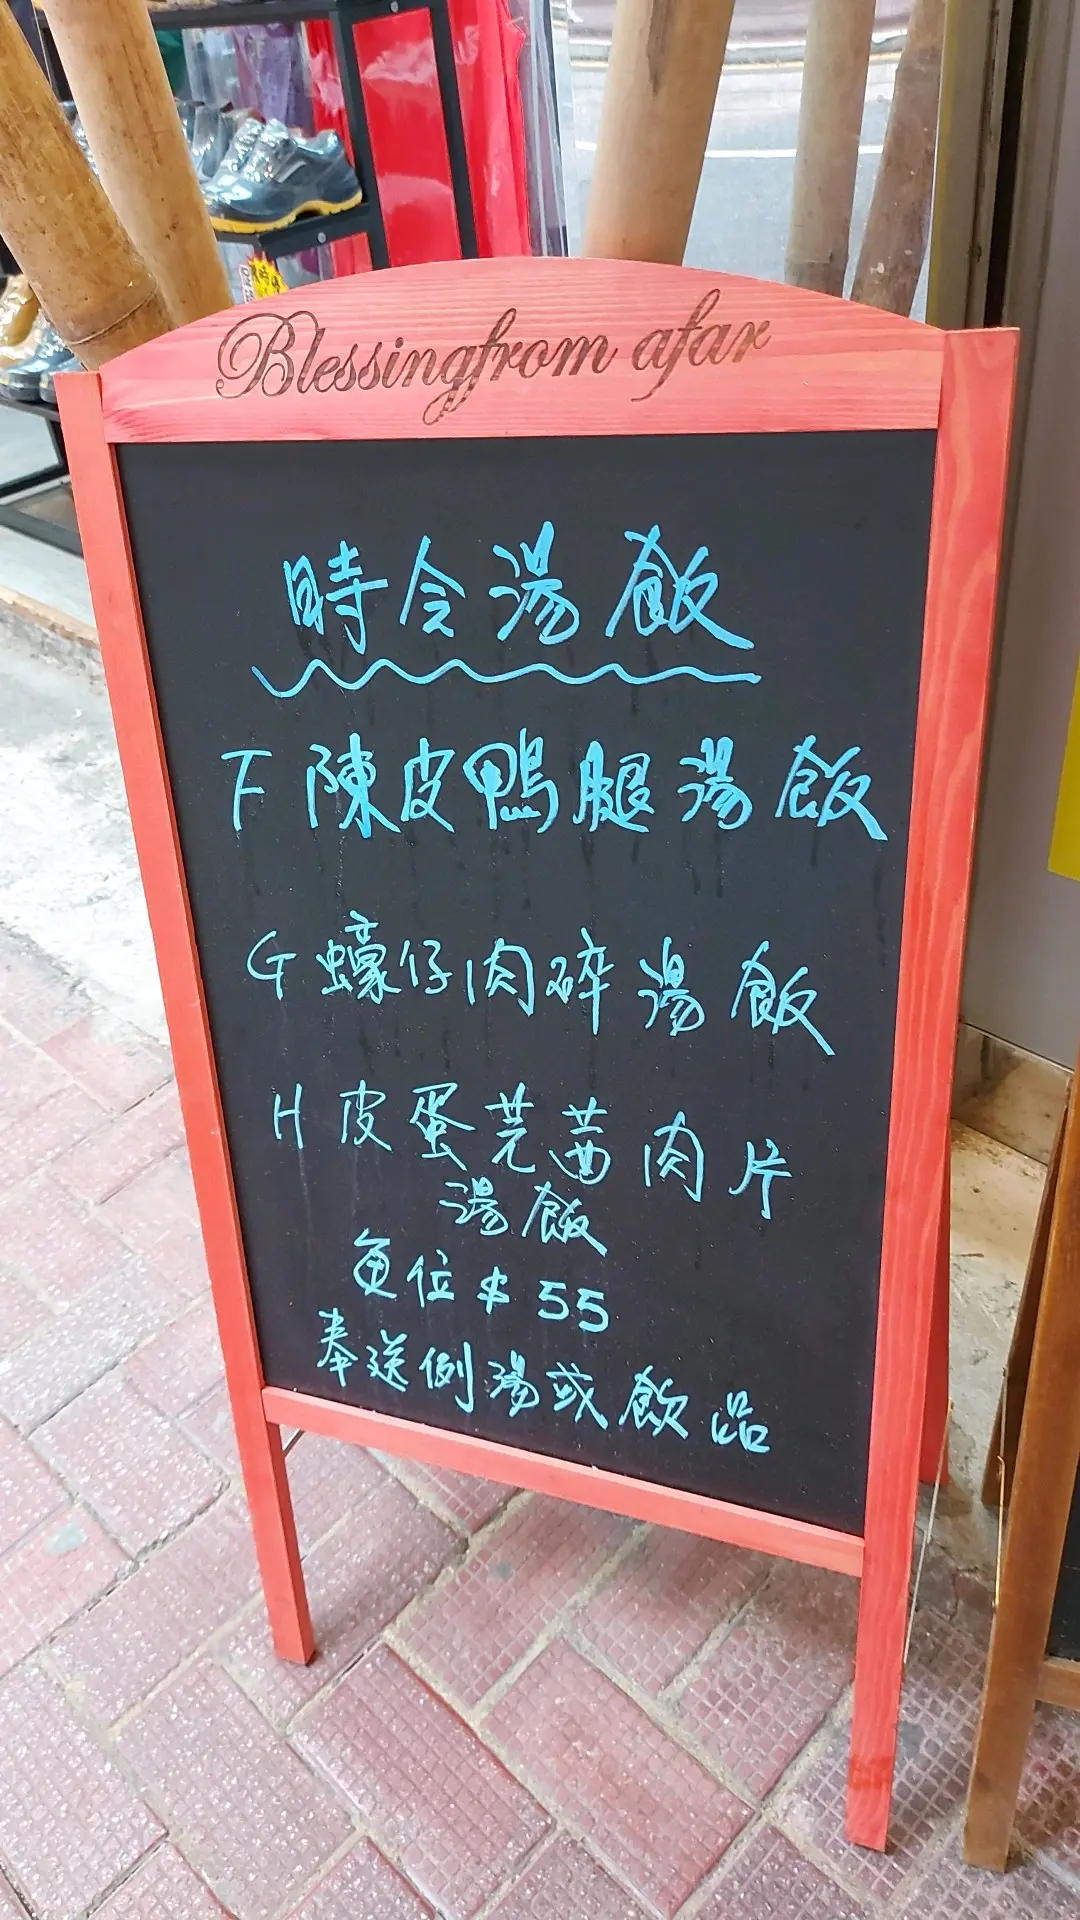 Blessingfrom afar
時令湯飯
F 陳皮鴨腿湯飯
G 蠔仔肉碎湯飯
H 皮蛋芫茜肉片
湯飯
每位 $ 55
奉送例湯或飲品